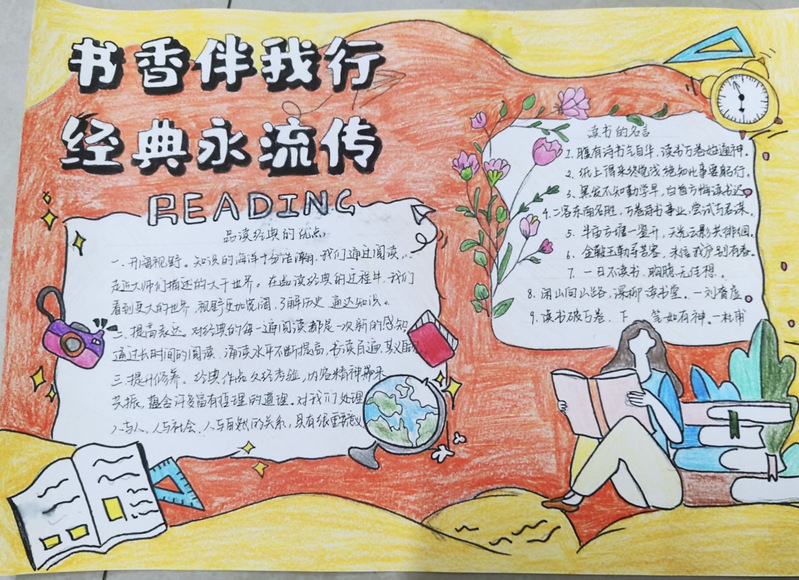 书香伴我行
经典永流传
READING
品读经典的优点
一、开阔视野。知识的海洋十分浩瀚，我们通过阅读，
走近大师们描述的大千世界。在品读经典的过程中，我们
看到更大的世界，视野更加宽阔，了解历史，通达知识。
二、提高表达，对经典的每一遍阅读都是一次新的感知
通过长时间的阅读，诵读水平不断提高，书读百遍，其义自
三、提升修养。经典作品久经考验，内容精神
蕴含许多富有哲理的道理。对我们处理
人与人、人与社会、人与自然的关系，具有很重要
读书的名言
1、腹有诗书气自华，读书万卷始通神。
2、纸上得来终觉浅，绝知此事要躬行。
3、黑发不知勤学早，白首方悔读书迟
5、半亩方塘一鉴开，天光云影共徘徊。
7、一日不读书，胸臆无佳想。
8、闲门向山路，深柳读书堂。—刘眘虚
9、读书破万卷，下 笔如有神。—杜甫